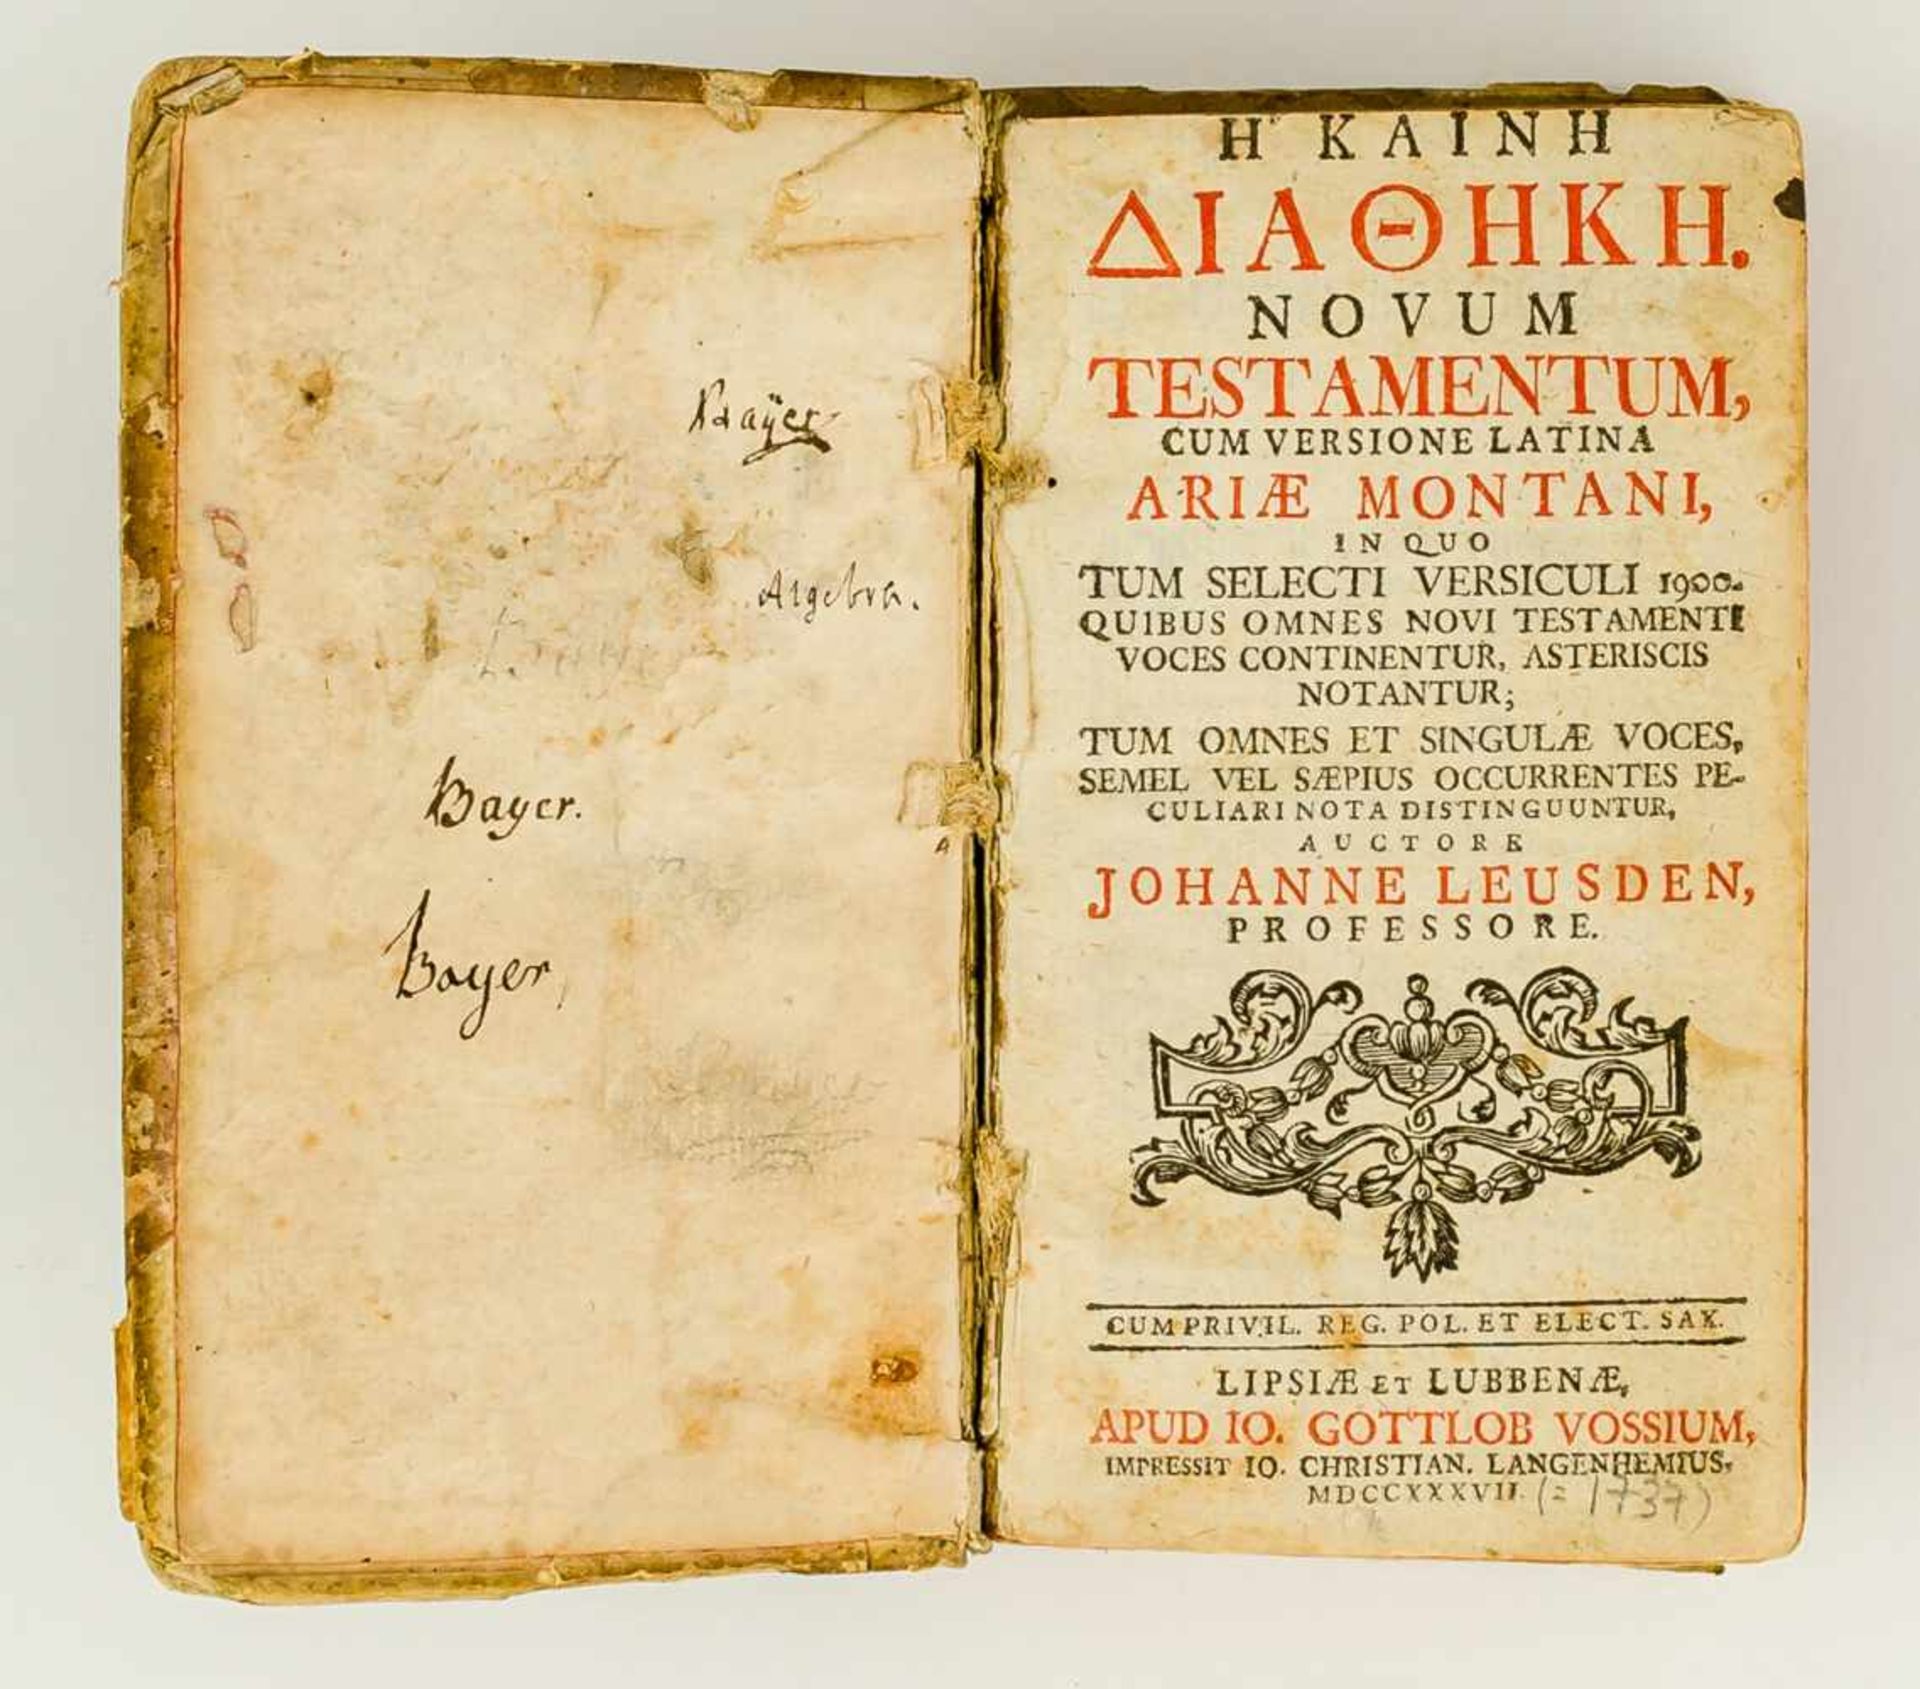 Bayer
Algebra.
Bayer.
Bayer,
Η ΚΑΙΝΗ
ΔΙΑΘΗΚΗ.
NOVUM
TESTAMENTUM,
CUM VERSIONE LATINA
ARIÆ MONTANI,
IN QUO
TUM SELECTI VERSICULI 1900.
QUIBUS OMNES NOVI TESTAMENTI
VOCES CONTINENTUR, ASTERISCIS
NOTANTUR;
TUM OMNES ET SINGULÆ VOCES,
SEMEL VEL SÆPIUS OCCURRENTES PE-
CULIARI NOTA DISTINGUUNTUR,
AUCTORE
JOHANNE LEUSDEN,
PROFESSORE.
CUM PRIVIL. REG. POL. ET ELECT. SAX.
LIPSIÆ ET LUBBENÆ,
APUD IO. GOTTLOB VOSSIUM,
IMPRESSIT IO. CHRISTIAN. LANGENHEMIUS.
MDCCXXXVII. (= 1737)